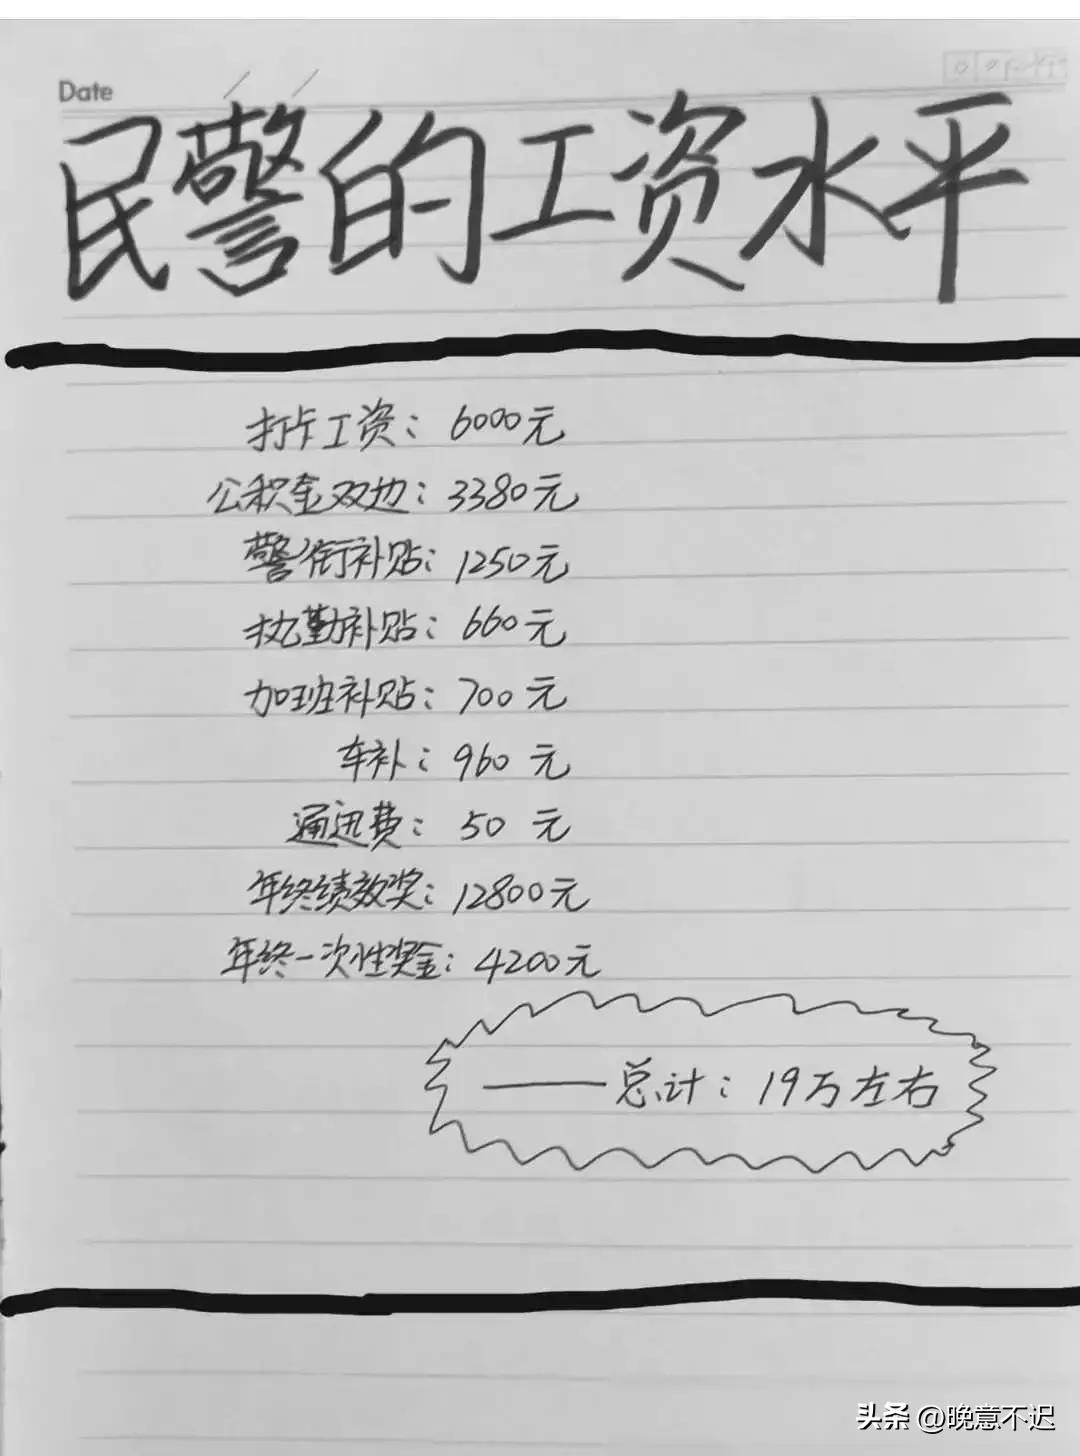 Date
民警的工资水平
打卡工资：6000元
公积金双边：3380元
警衔补贴：1250元
执勤补贴：660元
加班补贴：700元
车补：960元
通迅费：50元
年终绩效奖：12800元
年终一次性奖金：4200元
——总计：19万左右
头条 @晚意不迟